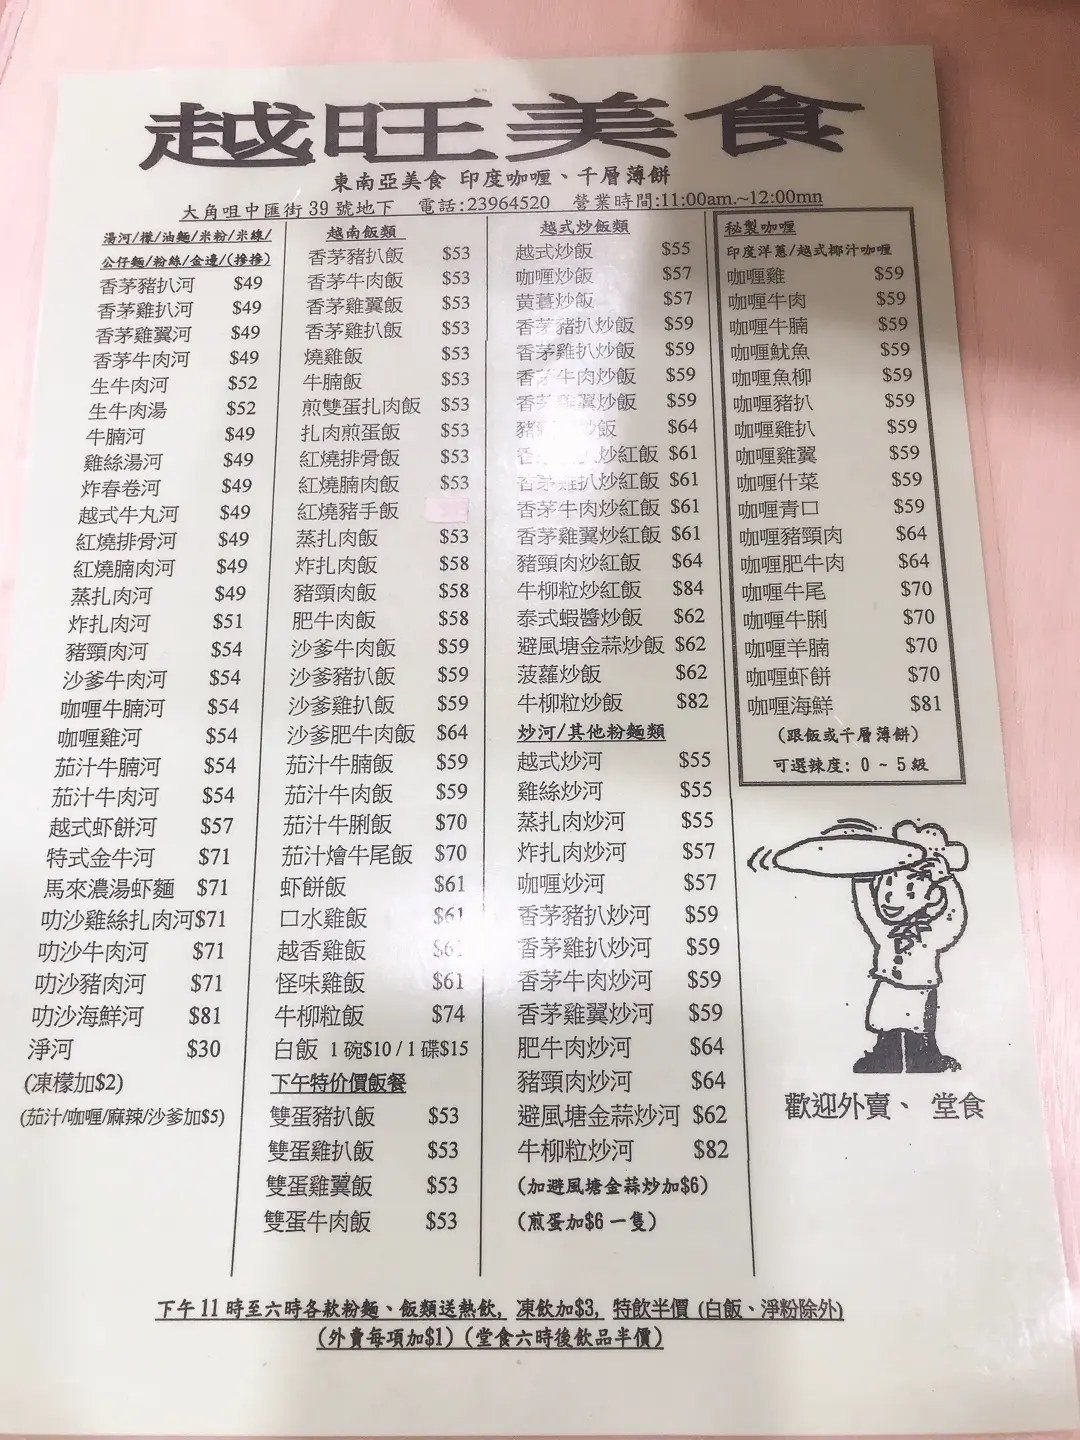 越旺美食
東南亞美食 印度咖喱、千層薄餅
大角咀中匯街 39 號地下 電話:23964520 營業時間:11:00am.~12:00mn
湯河/檬/油麵/米粉/米線/
公仔麵/粉絲/金邊/(摻摻)
香茅豬扒河 $49
香茅雞扒河 $49
香茅雞翼河 $49
香茅牛肉河 $49
生牛肉河 $52
生牛肉湯 $52
牛腩河 $49
雞絲湯河 $49
炸春卷河 $49
越式牛丸河 $49
紅燒排骨河 $49
紅燒腩肉河 $49
蒸扎肉河 $49
炸扎肉河 $51
豬頸肉河 $54
沙爹牛肉河 $54
咖喱牛腩河 $54
咖喱雞河 $54
茄汁牛腩河 $54
茄汁牛肉河 $54
越式虾餅河 $57
特式金牛河 $71
馬來濃湯虾麵 $71
叻沙雞絲扎肉河$71
叻沙牛肉河 $71
叻沙豬肉河 $71
叻沙海鮮河 $81
淨河 $30
(凍檬加$2)
(茄汁/咖喱/麻辣/沙爹加$5)
越南飯類
香茅豬扒飯 $53
香茅牛肉飯 $53
香茅雞翼飯 $53
香茅雞扒飯 $53
燒雞飯 $53
牛腩飯 $53
煎雙蛋扎肉飯 $53
扎肉煎蛋飯 $53
紅燒排骨飯 $53
紅燒腩肉飯 $53
紅燒豬手飯
蒸扎肉飯 $53
炸扎肉飯 $58
豬頸肉飯 $58
肥牛肉飯 $58
沙爹牛肉飯 $59
沙爹豬扒飯 $59
沙爹雞扒飯 $59
沙爹肥牛肉飯 $64
茄汁牛腩飯 $59
茄汁牛肉飯 $59
茄汁牛脷飯 $70
茄汁燴牛尾飯 $70
虾餅飯 $61
口水雞飯 $61
越香雞飯
怪味雞飯 $61
牛柳粒飯 $74
白飯 1 碗$10 / 1 碟$15
下午特价價飯餐
雙蛋豬扒飯 $53
雙蛋雞扒飯 $53
雙蛋雞翼飯 $53
雙蛋牛肉飯 $53
越式炒飯類
越式炒飯 $55
咖喱炒飯 $57
黄薑炒飯 $57
香茅豬扒炒飯 $59
香茅雞扒炒飯 $59
香茅牛肉炒飯 $59
香茅雞翼炒飯 $59
豬 炒飯 $64
香 扒炒紅飯 $61
香茅雞扒炒紅飯 $61
香茅牛肉炒紅飯 $61
香茅雞翼炒紅飯 $61
豬頸肉炒紅飯 $64
牛柳粒炒紅飯 $84
泰式蝦醬炒飯 $62
避風塘金蒜炒飯 $62
菠蘿炒飯 $62
牛柳粒炒飯 $82
炒河/其他粉麵類
越式炒河 $55
雞絲炒河 $55
蒸扎肉炒河 $55
炸扎肉炒河 $57
咖喱炒河 $57
香茅豬扒炒河 $59
香茅雞扒炒河 $59
香茅牛肉炒河 $59
香茅雞翼炒河 $59
肥牛肉炒河 $64
豬頸肉炒河 $64
避風塘金蒜炒河 $62
牛柳粒炒河 $82
(加避風塘金蒜炒加$6)
(煎蛋加$6 一隻)
秘製咖喱
印度洋蔥/越式椰汁咖喱
咖喱雞 $59
咖喱牛肉 $59
咖喱牛腩 $59
咖喱魷魚 $59
咖喱魚柳 $59
咖喱豬扒 $59
咖喱雞扒 $59
咖喱雞翼 $59
咖喱什菜 $59
咖喱青口 $59
咖喱豬頸肉 $64
咖喱肥牛肉 $64
咖喱牛尾 $70
咖喱牛脷 $70
咖喱羊腩 $70
咖喱虾餅 $70
咖喱海鮮 $81
(跟飯或千層薄餅)
可選辣度: 0 ~ 5 級
歡迎外賣、 堂食
下午 11 時至六時各款粉麵、飯類送熱飲, 凍飲加$3, 特飲半價 (白飯、淨粉除外)
(外賣每項加$1) (堂食六時後飲品半價)